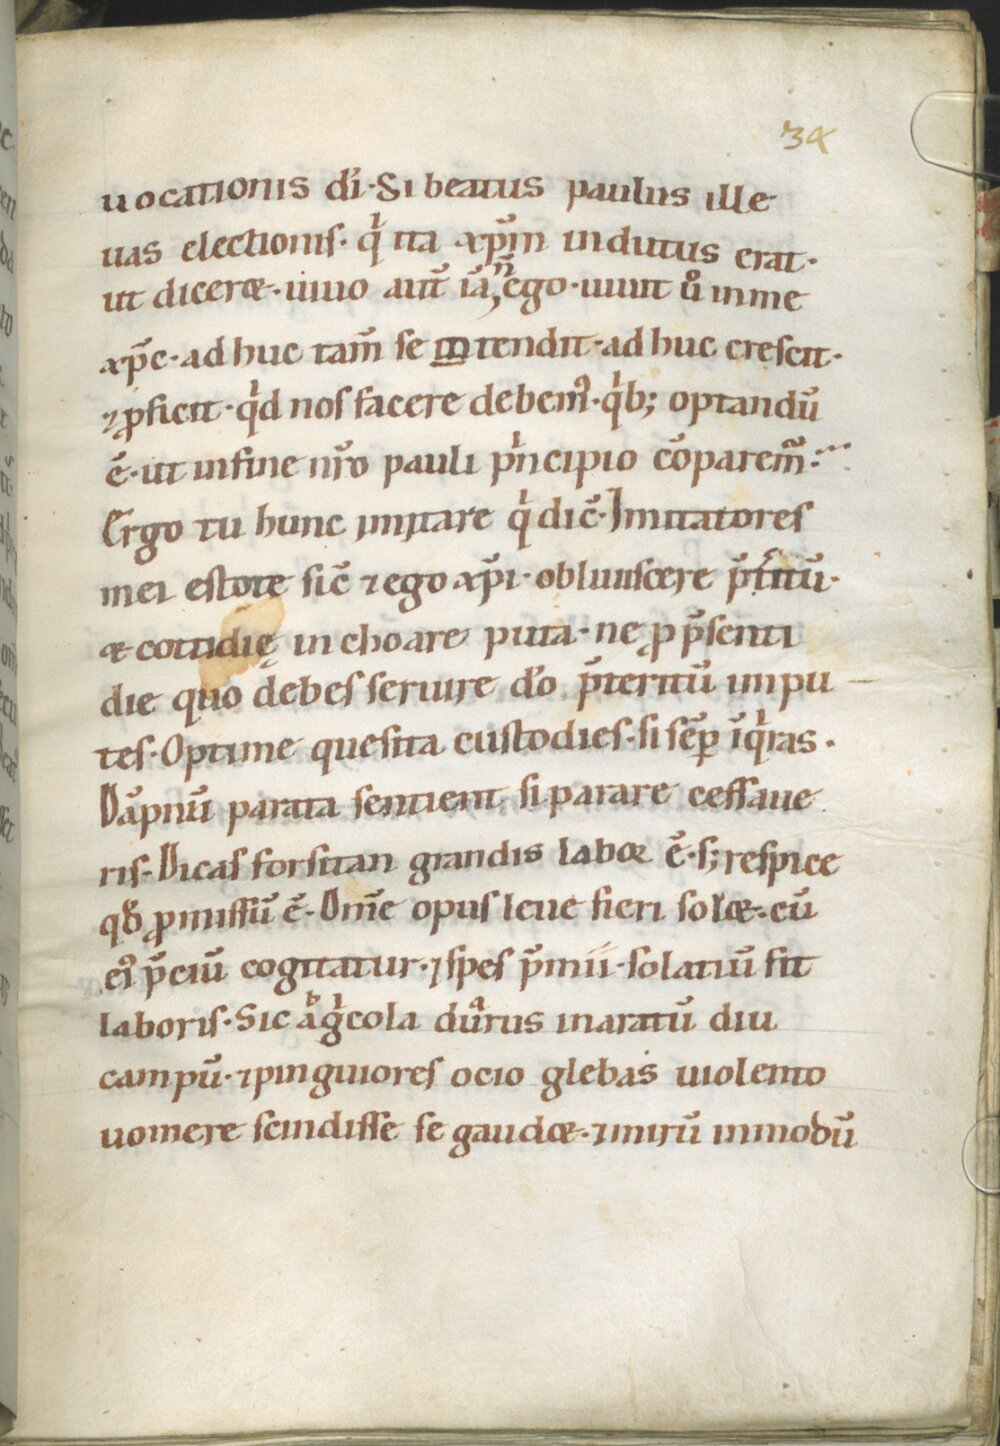 34
uocationis dı̄. Si beatus paulus ille
uas electionis. qͥ ita xp̄m indutus erat.
ut diceret. uiuo aut̄ iā n̄ ego. uiuit ů inme
xp̄c. ad huc tam̄ se intendit. ad huc crescit.
⁊ ꝓficit. qͥd nos facere debem᷒. qͥb; optandū
ē. ut infine nr̄o pauli pͥncipio cōparem̄.
Ergo tu hunc imitare qͥ dic̄. Imitatores
mei estote sic̄ ⁊ ego xp̄i. obliuiscere p̄t̾itū.
et cottidię in choare puta. ne ꝓ p̄senti
die quo debes seruire dō p̄teritū impu
tes. Optime quesita custodies. si sēꝑ īqͥras.
Dāpnū parata sentient si parare cessaue
ris. Dicas forsitan grandis labor ē. s; respice
qđ ꝓmissū ē. Om̄e opus leue fieri solet. cū
ei᷒ p̄ciū cogitatur. ⁊ spes p̄mii. solatiū fit
laboris. Sic agͥcola duͣrus inaratū diu
campū. ⁊ pinguiores ocio glebas uiolento
uomere scindisse se gaudet. ⁊ mirū inmodū